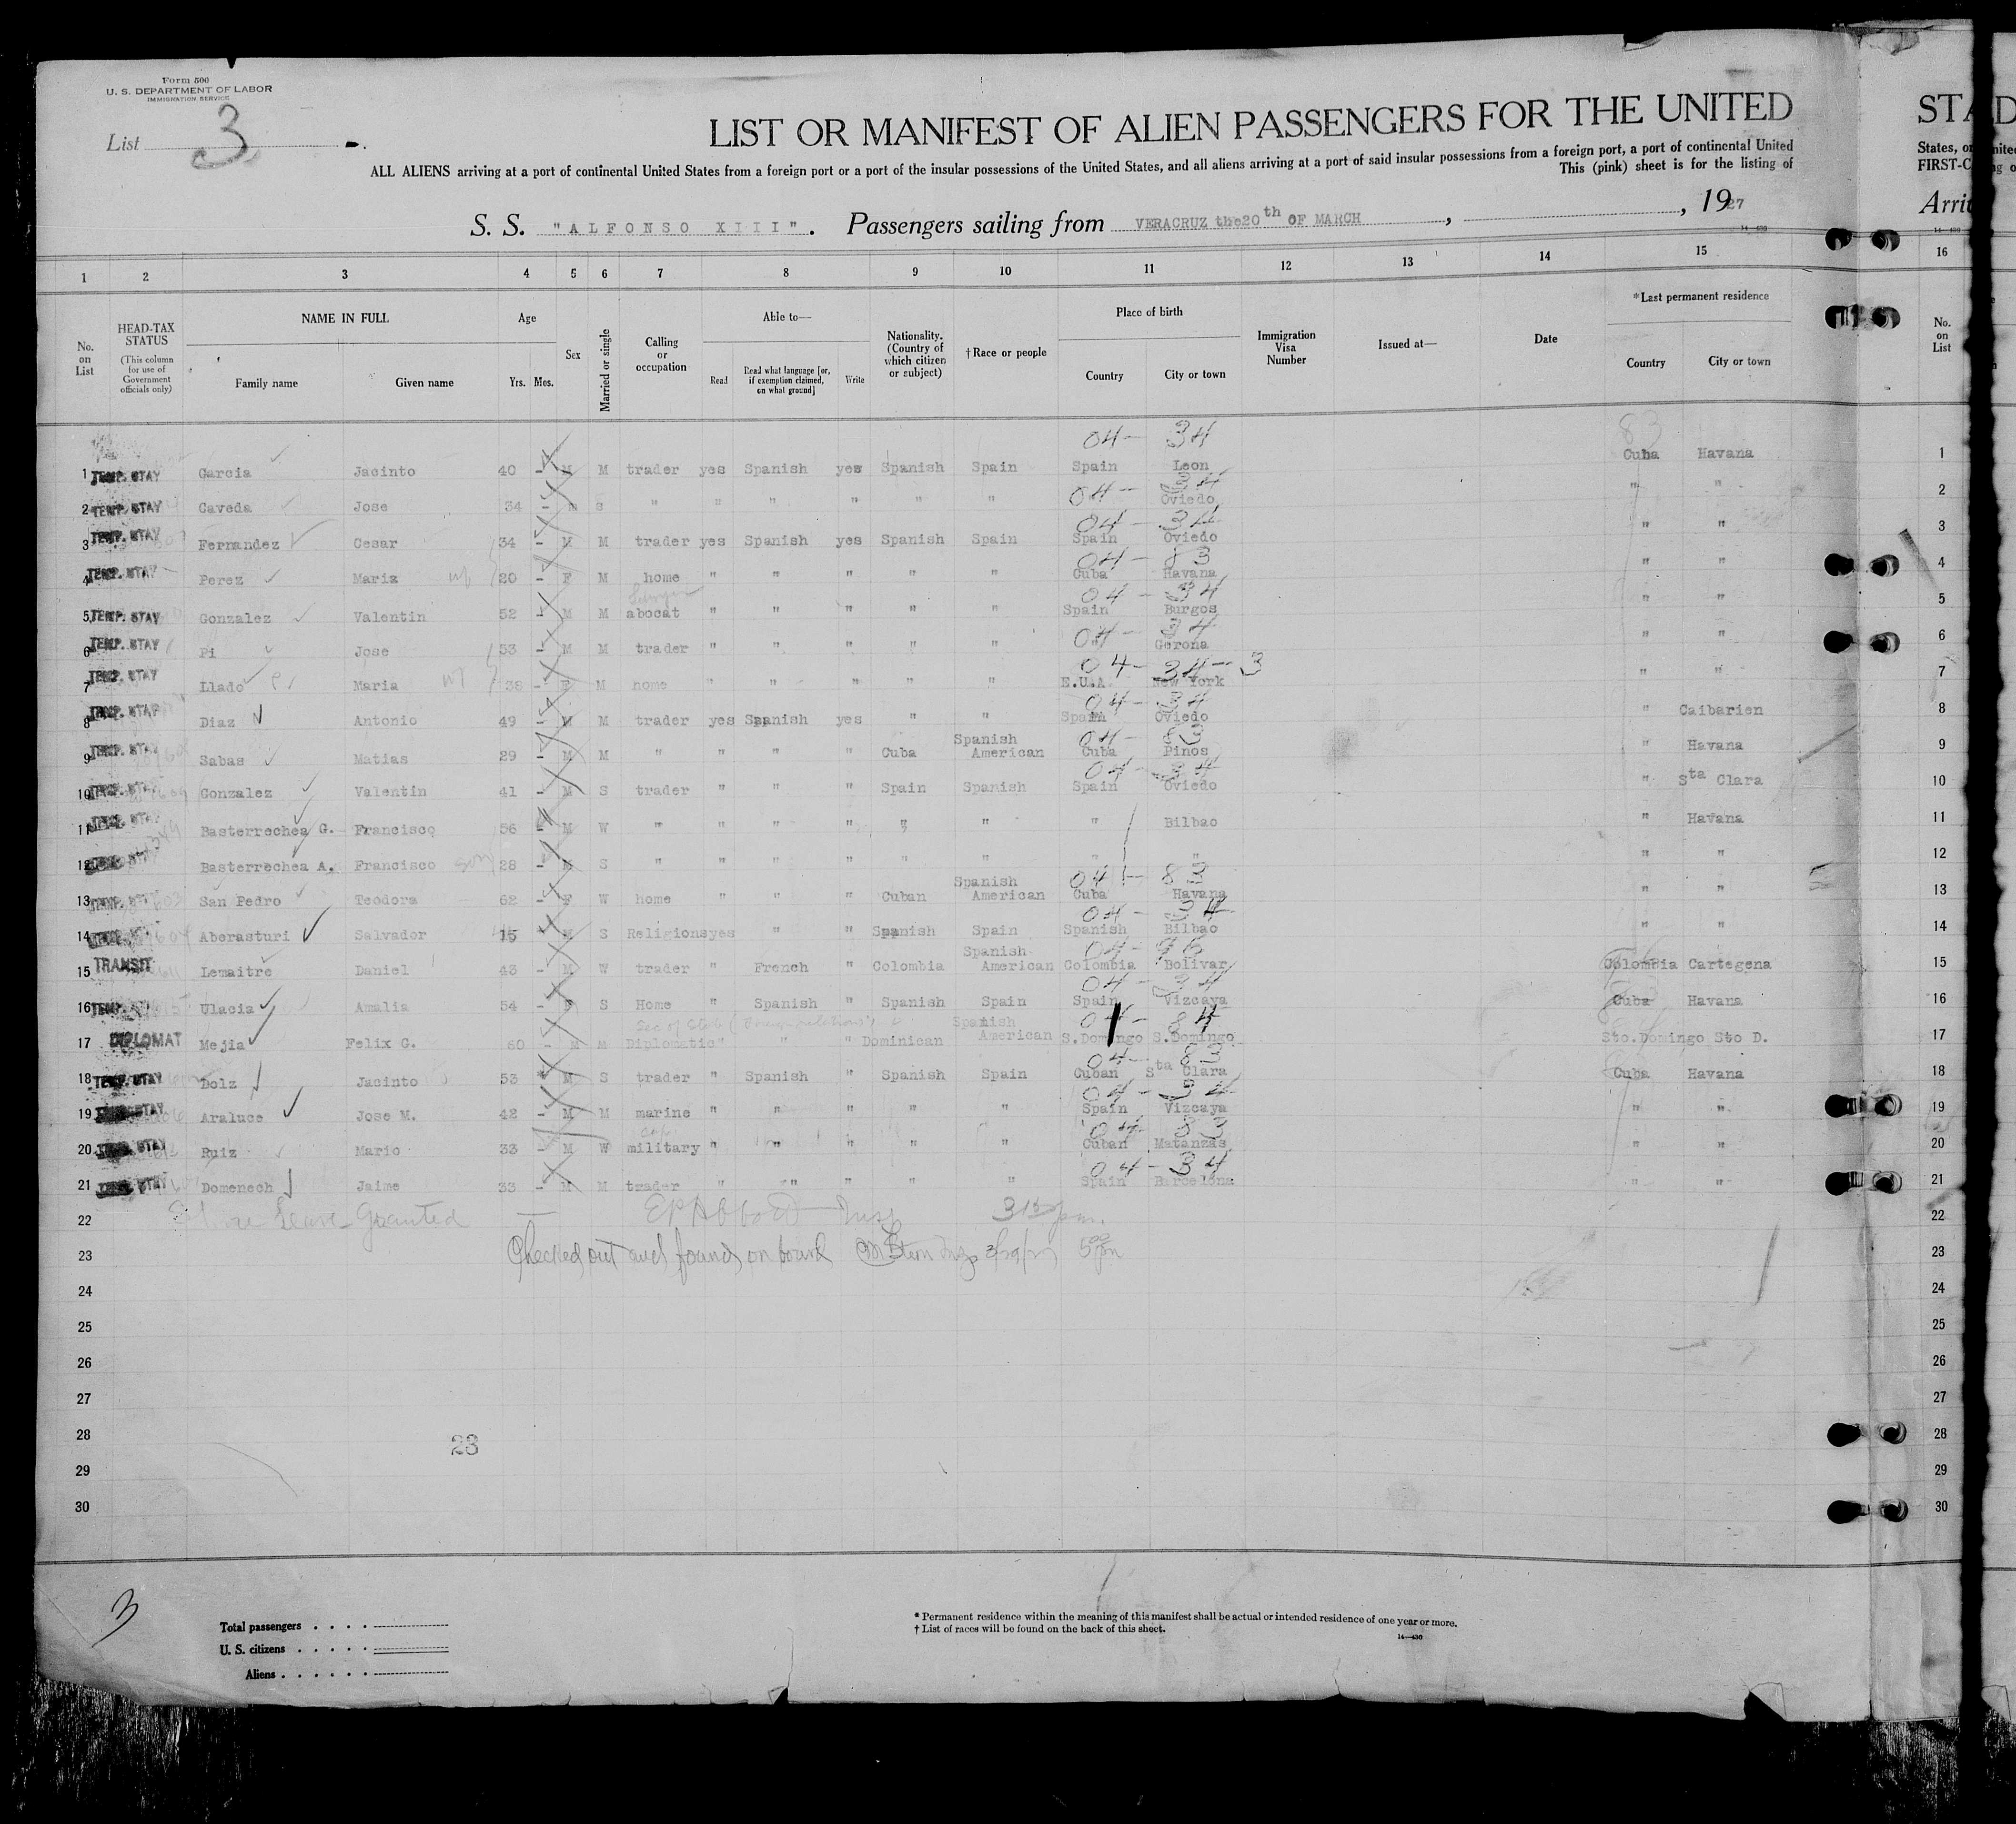 Form 500
U. S. DEPARTMENT OF LABOR
IMMIGRATION SERVICE
List 3
LIST OR MANIFEST OF ALIEN PASSENGERS FOR THE UNITED
ALL ALIENS arriving at a port of continental United States from a foreign port or a port of the insular possessions of the United States, and all aliens arriving at a port of said insular possessions from a foreign port, a port of continental United
This (pink) sheet is for the listing of
S. S. "ALFONSO XIII". Passengers sailing from VERACRUZ the 20th OF MARCH, 1927
1 2 3 4 5 6 7 8 9 10 11 12 13 14 15 16
No. on List
HEAD-TAX STATUS (This column for use of Government officials only)
NAME IN FULL
Family name Given name
Age
Yrs. Mos.
Sex
Married or single
Calling or occupation
Able to—
Read Read what language [or, if exemption claimed, on what ground] Write
Nationality. (Country of which citizen or subject)
†Race or people
Place of birth
Country City or town
Immigration Visa Number
Issued at—
Date
*Last permanent residence
Country City or town
No. on List
04- 34 83
1 TEMP. STAY Garcia Jacinto 40 - M M trader yes Spanish yes Spanish Spain Spain Leon Cuba Havana 1
04- 34
2 TEMP. STAY Caveda Jose 34 - m s " " " " " " Oviedo " " 2
04- 34
3 TEMP. STAY Fernandez Cesar 34 - M M trader yes Spanish yes Spanish Spain Spain Oviedo " " 3
04- 83
4 TEMP. STAY Perez Maria 20 - F M home " " " " " Cuba Havana " " 4
04- 34
5 TEMP. STAY Gonzalez Valentin 52 - M M abocat " " " " " Spain Burgos " " 5
04- 34
6 TEMP. STAY Pi Jose 53 - M M trader " " " " " " Gerona " " 6
04- 34-3
7 TEMP. STAY Llado Maria 38 - F M home " " " " " E.U.A. New York " " 7
04- 34
8 TEMP. STAY Diaz Antonio 49 - M M trader yes Spanish yes " " Spain Oviedo " Caibarien 8
04- 83
9 TEMP. STAY Sabas Matias 29 - M M " " " " Cuba Spanish American Cuba Pinos " Havana 9
04- 34
10 Gonzalez Valentin 41 - M S trader " " " Spain Spanish Spain Oviedo " Sta Clara 10
11 Basterrechea G. Francisco 56 - M W " " " " " " " Bilbao " Havana 11
12 Basterrechea A. Francisco son 28 - M S " " " " " " " " " " 12
04- 83
13 San Pedro Teodora 62 - F W home " " " Cuban Spanish American Cuba Havana " " 13
04- 34
14 Aberasturi Salvador 15 M S Religions yes " " Spanish Spain Spanish Bilbao " " 14
15 TRANSIT Lemaitre Daniel 43 - M W trader " French " Colombia Spanish American Colombia Bolivar Colombia Cartegena 15
04- 34
16 TEMP. Ulacia Amalia 54 - S Home " Spanish " Spanish Spain Spain Vizcaya Cuba Havana 16
04- 84
17 DIPLOMAT Mejia Felix G. 60 - M M Diplomatic " " " Dominican Spanish American S.Domingo S.Domingo Sto.Domingo Sto D. 17
04- 83
18 TEMP. STAY Dolz Jacinto 53 M S trader " Spanish " Spanish Spain Cuban Sta Clara Cuba Havana 18
04- 34
19 Araluce Jose M. 42 - M M marine " " " " " Spain Vizcaya " " 19
04- 83
20 Ruiz Mario 33 - M W military " " " " " Cuban Matanzas " " 20
04- 34
21 Domenech Jaime 33 - M M trader " " " " " Spain Barcelona " " 21
22 Shore Leave Granted 22
23 Checked out and found on board 23
24 24
25 25
26 26
27 27
28 28
23
29 29
30 30
3
Total passengers
U. S. citizens
Aliens
* Permanent residence within the meaning of this manifest shall be actual or intended residence of one year or more.
† List of races will be found on the back of this sheet.
14—430